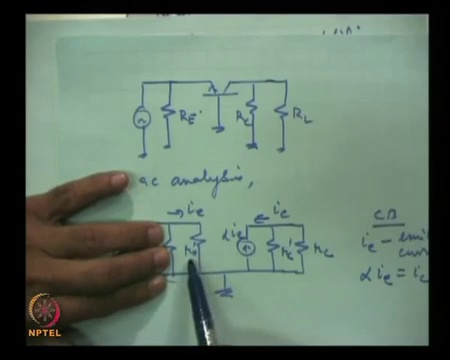 RE
Rc
RL
ac analysis,
ie
ic
CB
αie
r'e
r'c
rc
ie - emi
curr
αie = ic
NPTEL